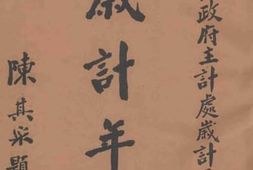 政府主計處歲計
歲計年
陳其采題